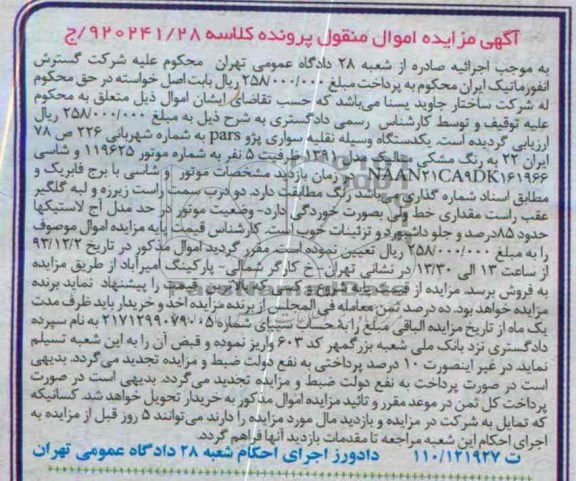 آگهی مزایده اموال منقول پرونده کلاسه ۹۲۰۲۴۱/۲۸/ج
به موجب اجرائیه صادره از شعبه ۲۸ دادگاه عمومی تهران محکوم علیه شرکت گسترش
انفورماتیک ایران محکوم به پرداخت مبلغ ۲۵۸/۰۰۰/۰۰۰ ریال بابت اصل خواسته در حق محکوم
له شرکت ساختار جاوید یسنا می‌باشد که حسب تقاضای ایشان اموال ذیل متعلق به محکوم
علیه توقیف و توسط کارشناس رسمی دادگستری به شرح ذیل به مبلغ ۲۵۸/۰۰۰/۰۰۰ ریال
ارزیابی گردیده است. یکدستگاه وسیله نقلیه سواری پژو pars به شماره شهربانی ۲۲۶ ص ۷۸
ایران ۲۲ به رنگ مشکی متالیک مدل ۱۳۹۱ ظرفیت ۵ نفر به شماره موتور ۱۱۹۶۲۵ و شاسی
NAAN۲۱CA۹DK۱۶۱۹۶۶ در زمان بازدید مشخصات موتور و شاسی با برج فابریک و
مطابق اسناد شماره گذاری می‌باشد رنگ مطابقت دارد. دو درب سمت راست زیرزه و لبه گلگیر
عقب راست مقداری خط ولی بصورت خوردگی دارد- وضعیت موتور در حد مدل آج لاستیکها
حدود ۸۵درصد و جلو داشبورد و تزئینات خوب است. کارشناس قیمت پایه مزایده اموال موصوف
را به مبلغ ۲۵۸/۰۰۰/۰۰۰ ریال تعیین نموده است. مقرر گردید اموال مذکور در تاریخ ۹۳/۱۲/۲
از ساعت ۱۳ الی ۱۳/۳۰ در نشانی تهران-خ کارگر شمالی- پارکینگ امیرآباد از طریق مزایده
به فروش برسد. مزایده از قیمت پایه شروع و کسی که بالاترین قیمت را پیشنهاد نماید برنده
مزایده خواهد بود. ده درصد ثمن معامله فی المجلس از برنده مزایده اخذ و خریدار باید ظرف مدت
یک ماه از تاریخ مزایده الباقی مبلغ را به حساب سیبای شماره ۲۱۷۱۲۹۹۰۷۹۰۰۵ به نام سپرده
دادگستری نزد بانک ملی شعبه بزرگمهر کد ۶۰۳ واریز نموده و قبض آن را به این شعبه تسلیم
نماید. در غیر اینصورت ۱۰ درصد پرداختی به نفع دولت ضبط و مزایده تجدید می‌گردد. بدیهی
است در صورت پرداخت به نفع دولت ضبط و مزایده تجدید می‌گردد. بدیهی است در صورت
پرداخت کل ثمن در موعد مقرر و تائید مزایده اموال مذکور به خریدار تحویل خواهد شد. کسانیکه
که تمایل به شرکت در مزایده و بازدید مال مورد مزایده را دارند می‌توانند ۵ روز قبل از مزایده به
اجرای احکام این شعبه مراجعه تا مقدمات بازدید آنها فراهم گردد.
ت ۱۱۰/۱۲۱۹۲۷ دادورز اجرای احکام شعبه ۲۸ دادگاه عمومی تهران